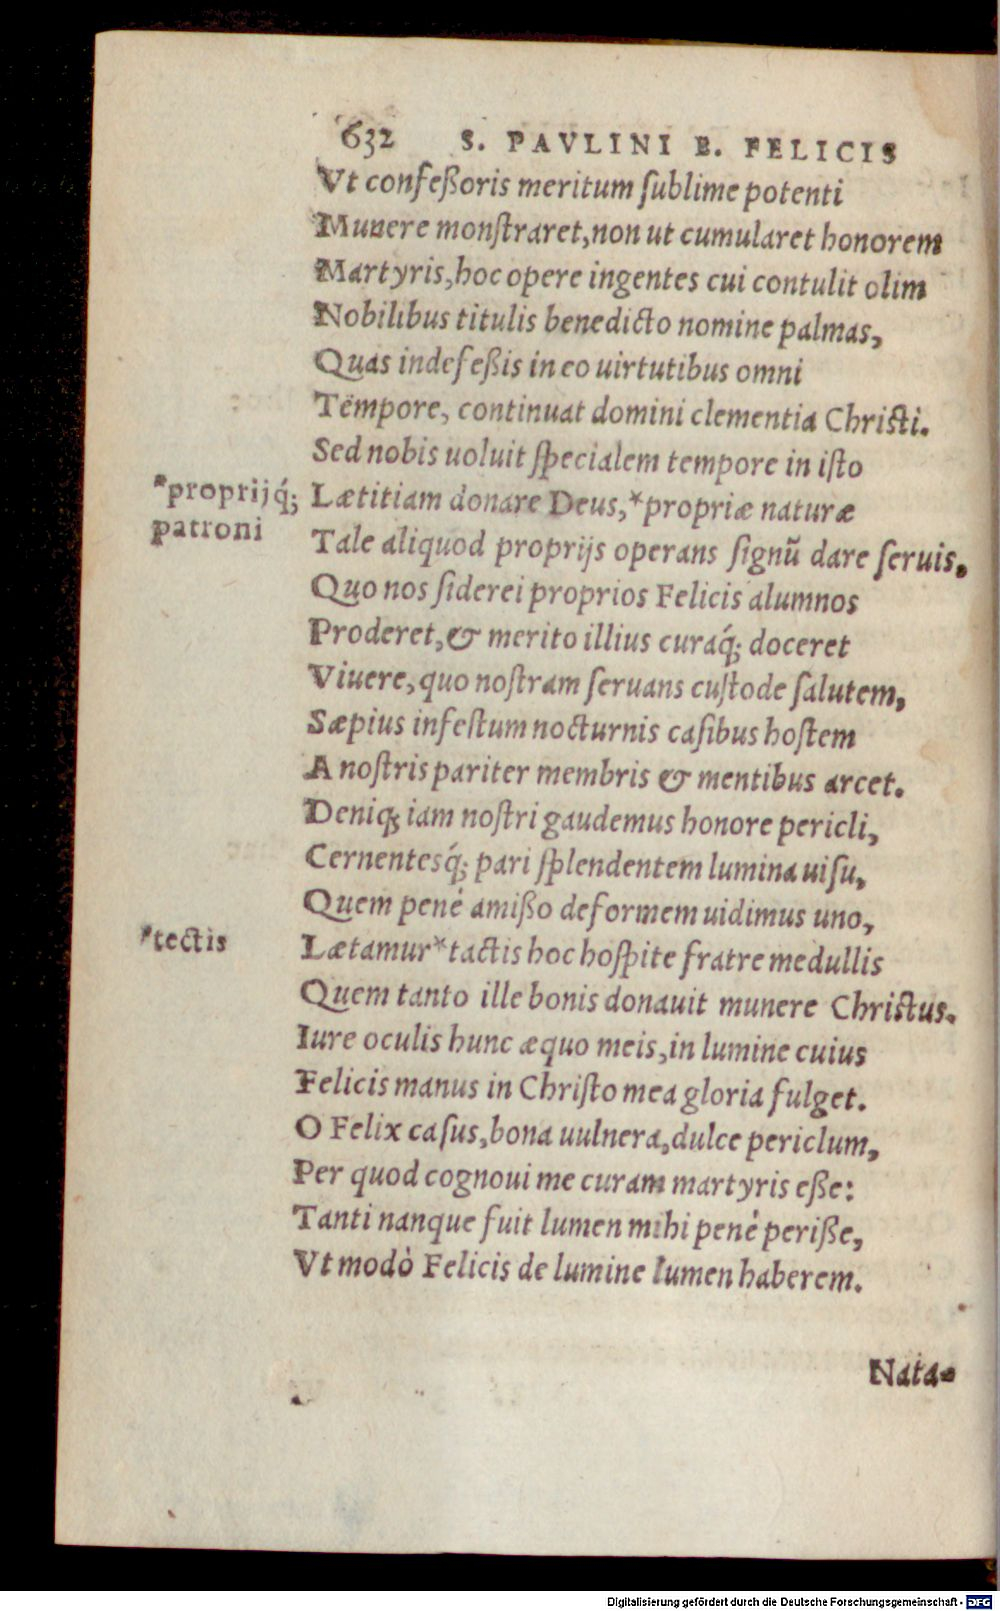 632 S. PAVLINI E. FELICIS
Vt confeßoris meritum ſublime potenti
Munere monſtraret, non ut cumularet honorem
Martyris, hoc opere ingentes cui contulit olim
Nobilibus titulis benedicto nomine palmas,
Quas indefeßis in eo uirtutibus omni
Tempore, continuat domini clementia Chriſti.
Sed nobis uoluit ſpecialem tempore in iſto
*proprijq́;
patroni
Lætitiam donare Deus, *propriæ naturæ
Tale aliquod proprijs operans ſignũ dare ſeruis.
Quo nos ſiderei proprios Felicis alumnos
Proderet, & merito illius curaq́; doceret
Viuere, quo noſtram ſeruans cuſtode ſalutem,
Sæpius infeſtum nocturnis caſibus hoſtem
A noſtris pariter membris & mentibus arcet.
Deniq; iam noſtri gaudemus honore pericli,
Cernentesq́; pari ſplendentem lumina uiſu,
Quem pené amißo deformem uidimus uno,
*tectis
Lætamur *tactis hoc hoſpite fratre medullis
Quem tanto ille bonis donauit munere Chriſtus.
Iure oculis hunc æquo meis, in lumine cuius
Felicis manus in Chriſto mea gloria fulget.
O Felix caſus, bona uulnera, dulce periclum,
Per quod cognoui me curam martyris eße:
Tanti nanque fuit lumen mihi pené periße,
Vt modò Felicis de lumine lumen haberem.
Nata-
Digitalisierung gefördert durch die Deutsche Forschungsgemeinschaft - DFG